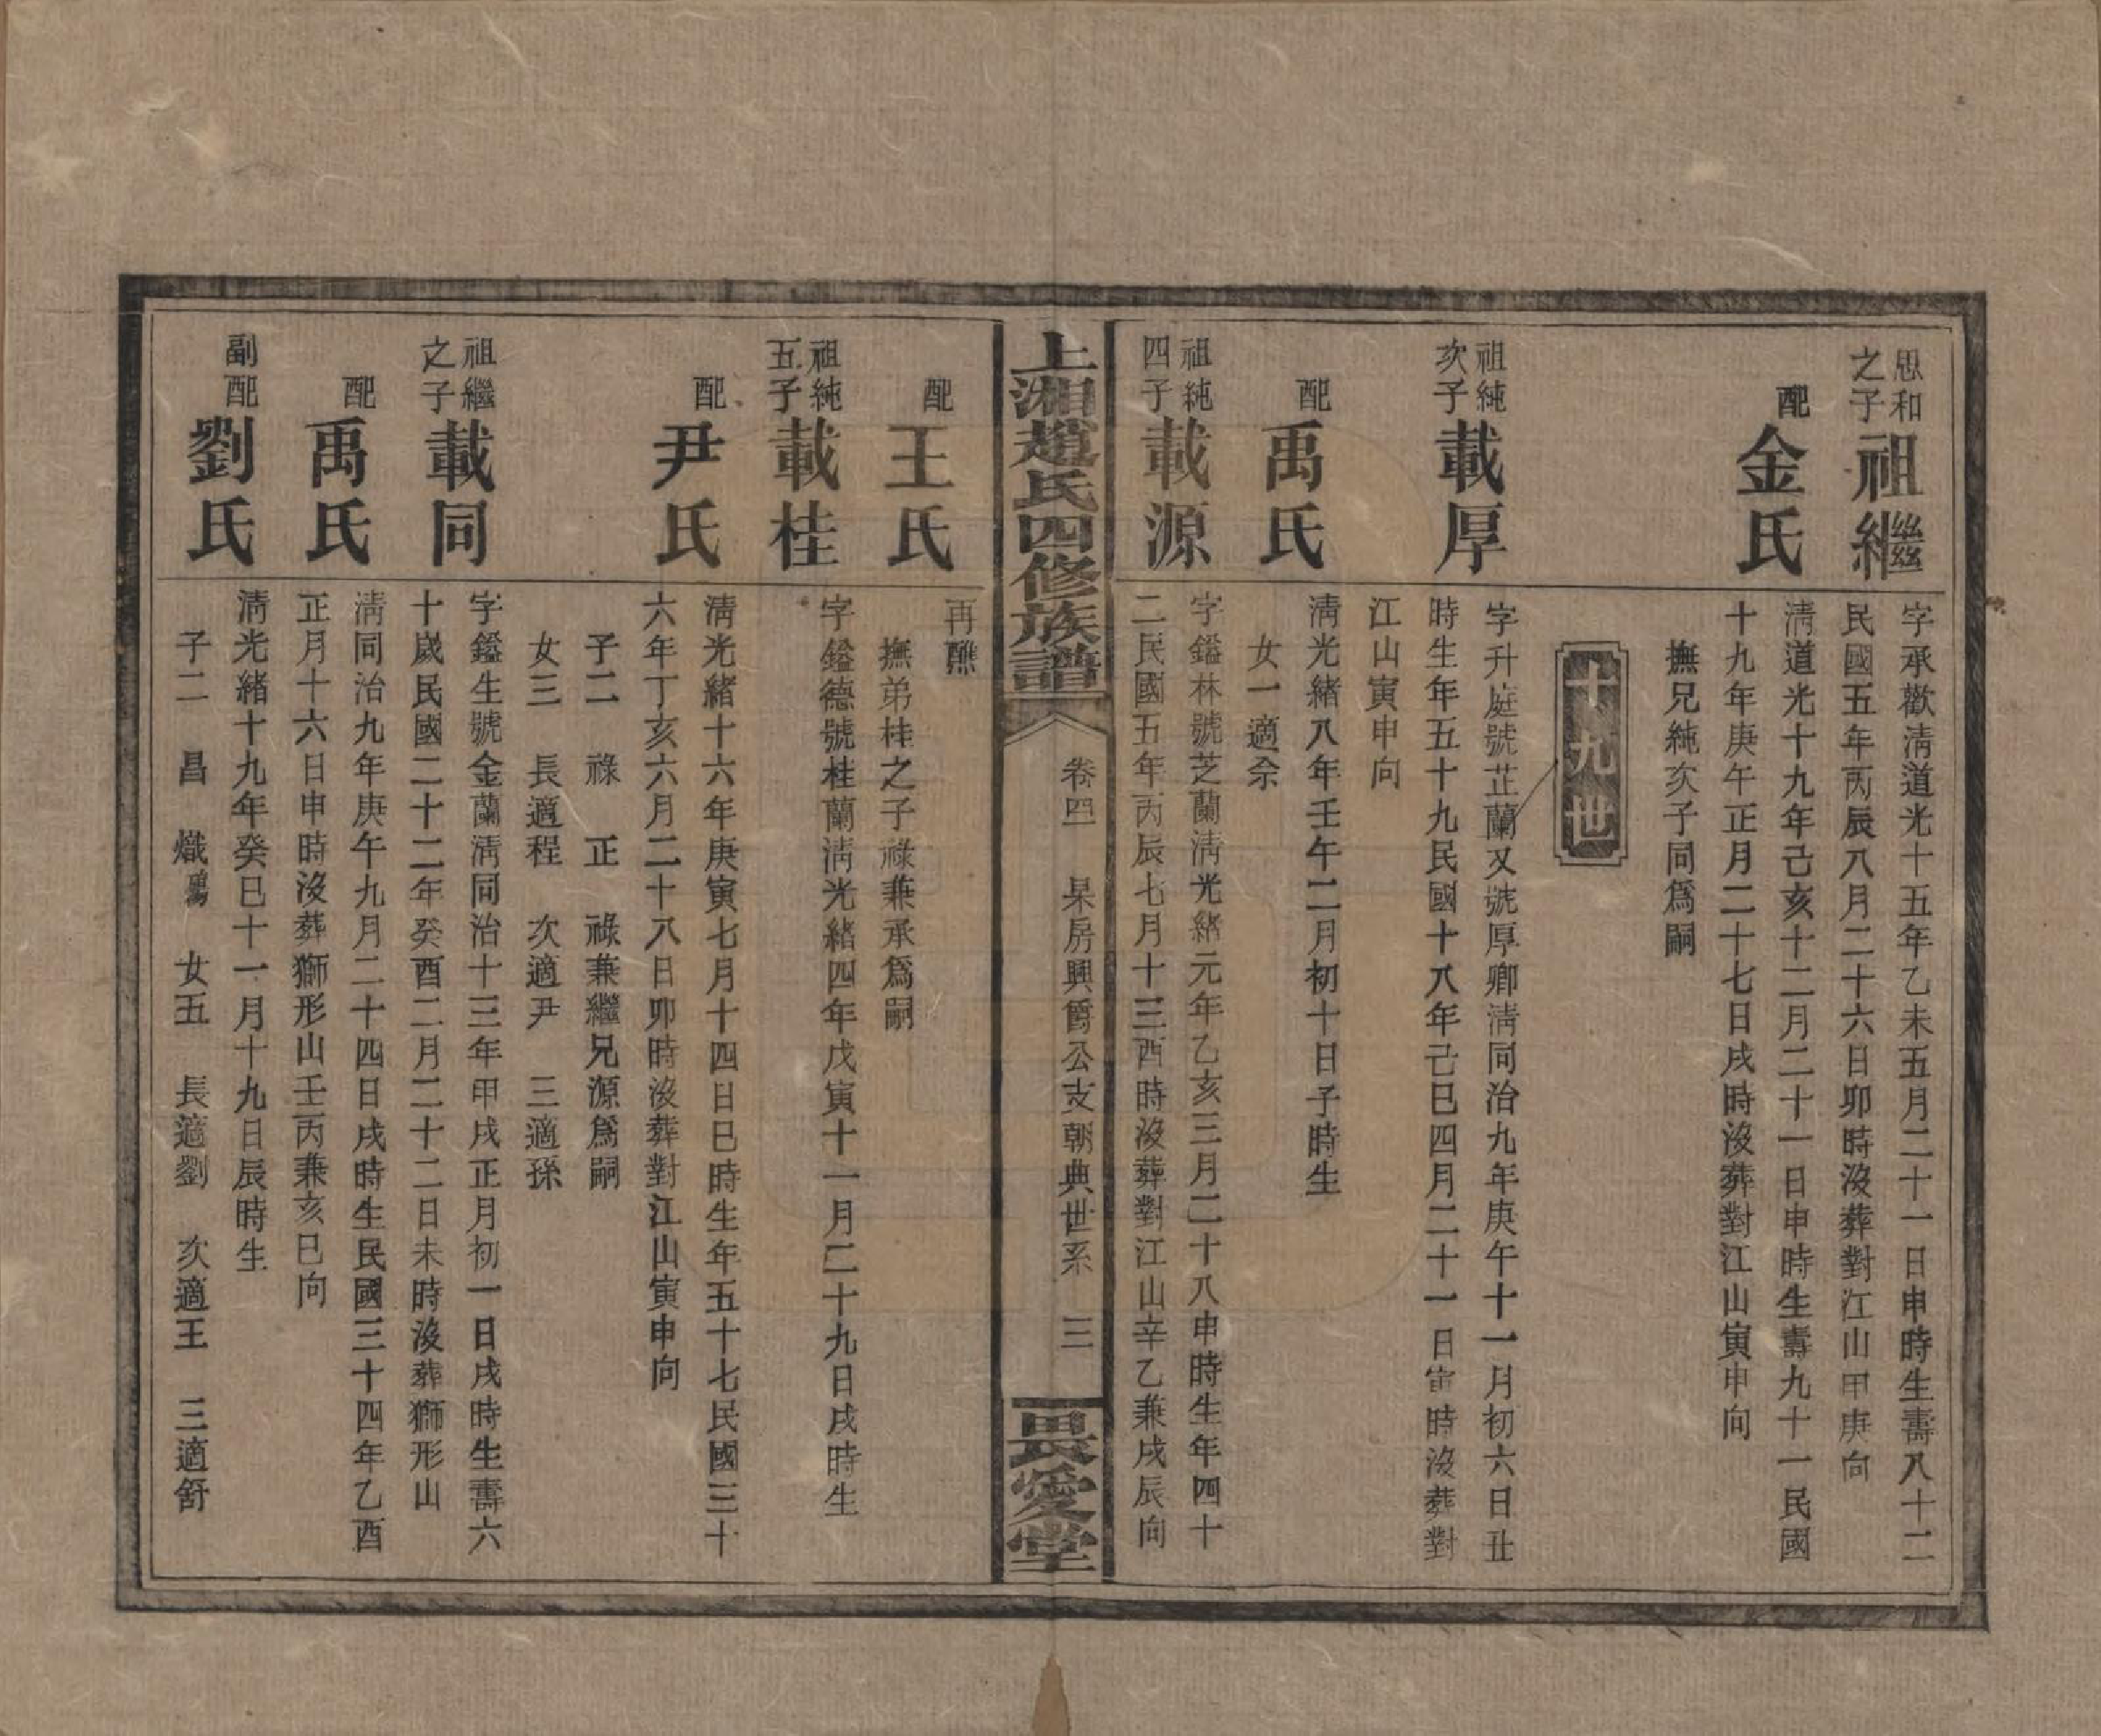 思和之子
祖繼
字承歡清道光十五年乙未五月二十一日申時生壽八十二
民國五年丙辰八月二十六日卯時沒葬對江山甲庚向
配
金氏
清道光十九年己亥十二月二十一日申時生壽九十一民國
十九年庚午正月二十七日戌時沒葬對江山寅申向
撫兄純次子同爲嗣
十九世
祖純次子
載厚
字升庭號芷蘭又號厚卿清同治九年庚午十一月初六日丑
時生年五十九民國十八年己巳四月二十一日寅時沒葬對
江山寅申向
配
禹氏
清光緒八年壬午二月初十日子時生
女一適佘
祖純四子
載源
字鎰林號芝蘭清光緒元年乙亥三月二十八申時生年四十
二民國五年丙辰七月十三酉時沒葬對江山辛乙兼戌辰向
上湘趙氏四修族譜
卷四 杲房興爵公支朝典世系 三
畏愛堂
配
王氏
再醮
撫弟桂之子祿兼承爲嗣
祖純五子
載桂
字鎰德號桂蘭清光緒四年戊寅十一月二十九日戌時生
配
尹氏
清光緒十六年庚寅七月十四日巳時生年五十七民國三十
六年丁亥六月二十八日卯時沒葬對江山寅申向
子二 祿 正 祿兼繼兄源爲嗣
女三 長適程 次適尹 三適孫
祖繼之子
載同
字鎰生號金蘭清同治十三年甲戌正月初一日戌時生壽六
十歲民國二十二年癸酉二月二十二日未時沒葬獅形山
配
禹氏
清同治九年庚午九月二十四日戌時生民國三十四年乙酉
正月十六日申時沒葬獅形山壬丙兼亥巳向
副配
劉氏
清光緒十九年癸巳十一月十九日辰時生
子二 昌 熾 女五 長適劉 次適王 三適舒